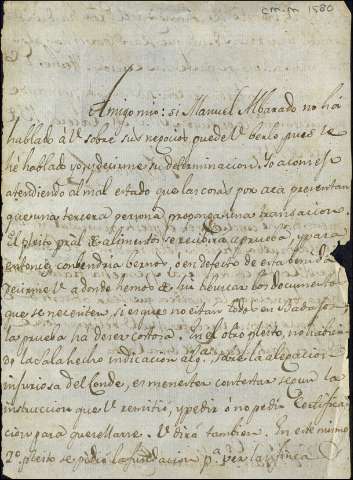 cm.m 1580
Amigo mio: si Manuel Albarado no há
hablado á V. sobre sus negocios puede V. berlo, pues le
hé hablado yo, y decirme su determinacion. Yo
atendiendo al mal estado que las cosas por acá presentan
que una tercera persona proponga una transacion.
El pleito pral de alimentos se recibirá a prueba, y para
entonces combendria bernos, o en defecto de esta
decirme V. a donde hemos de buscar los documentos
que se necesiten, si es que no estan todos en Badajoz
la prueba ha de ser costosa. En el otro pleito, no habien-
do la Sala hecho indicacion alg.ª sobre la alegacion
injuriosa del Conde, es menester contestar segun la
instruccion que V. remitió, y pedir ó no pedir Certifica-
cion para querellarse. V. dirá tambien. En este mismo
2.º pleito se pidió la fundacion p.ª